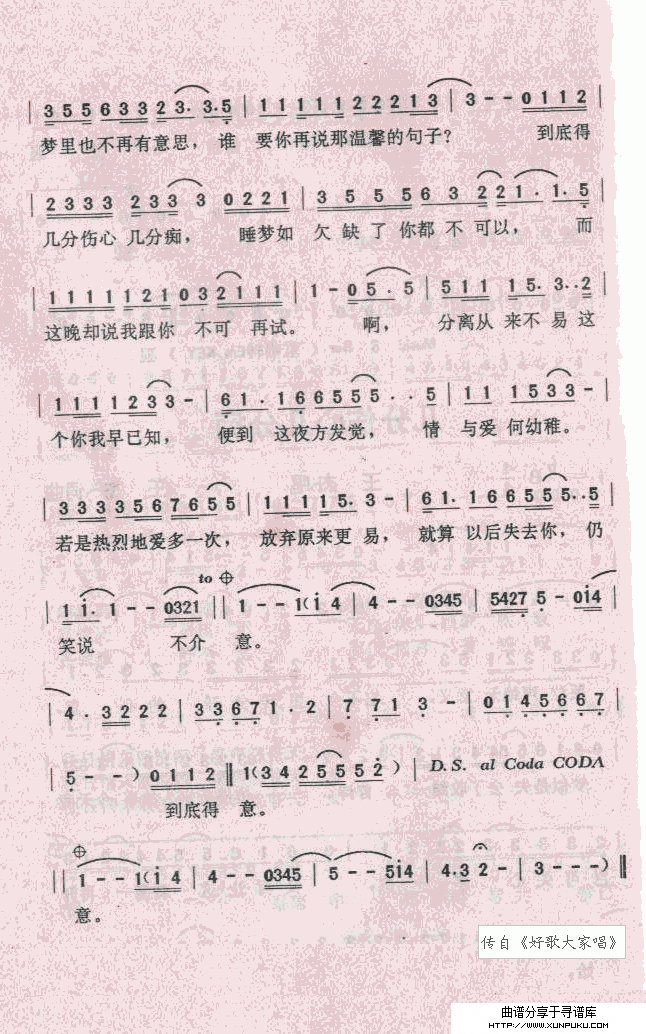 | 3 5 5 6 3 3 2 3. 3. 5 | 1 1 1 1 1 2 2 2 1 3 | 3 - - 0 1 1 2 |
梦里也不再有意思，谁 要你再说那温馨的句子？ 到底得
| 2 3 3 3 2 3 3 3 0 2 2 1 | 3 5 5 5 6 3 2 2 1 . 1. 5 |
几分伤心 几分痴， 睡梦如 欠缺了你都不可以， 而
| 1 1 1 1 1 2 1 0 3 2 1 1 1 | 1 - 0 5 . 5 | 5 1 1 1 5. 3 . . 2 |
这晚却说我跟你 不可 再试。 啊， 分离从 来不易这
| 1 1 1 1 2 3 3 - | 6 1 . 1 6 6 5 5 5 . . 5 | 1 1 1 5 3 3 - |
个你我早已知， 便到 这夜方发觉， 情 与爱 何幼稚。
| 3 3 3 3 5 6 7 6 5 5 | 1 1 1 1 5. 3 - | 6 1. 1 6 6 5 5 5. . 5 |
若是热烈地爱多一次， 放弃原来更易， 就算 以后失去你，仍
to
| 1 1. 1 - - 0321 || 1 - - 1 (1 4 | 4 - - 0345 | 5427 5 - 014
笑说 不介 意。
| 4 . 3 2 2 2 | 3 3 6 7 1 . 2 | 7 7 1 3 - | 0 1 4 5 6 6 7 |
5 - - ) 0 1 1 2 || 1 (3 4 2 5 5 5 2 ) | D.S. al Coda CODA
到底得 意。
|| 1 - - 1 (1 4 | 4 - - 0345 | 5 - - 514 | 4.3 2 - | 3 - - - ) ||
意。
传自《好歌大家唱》
曲谱分享于寻谱库
HTTP://WWW.XUNPUKU.COM